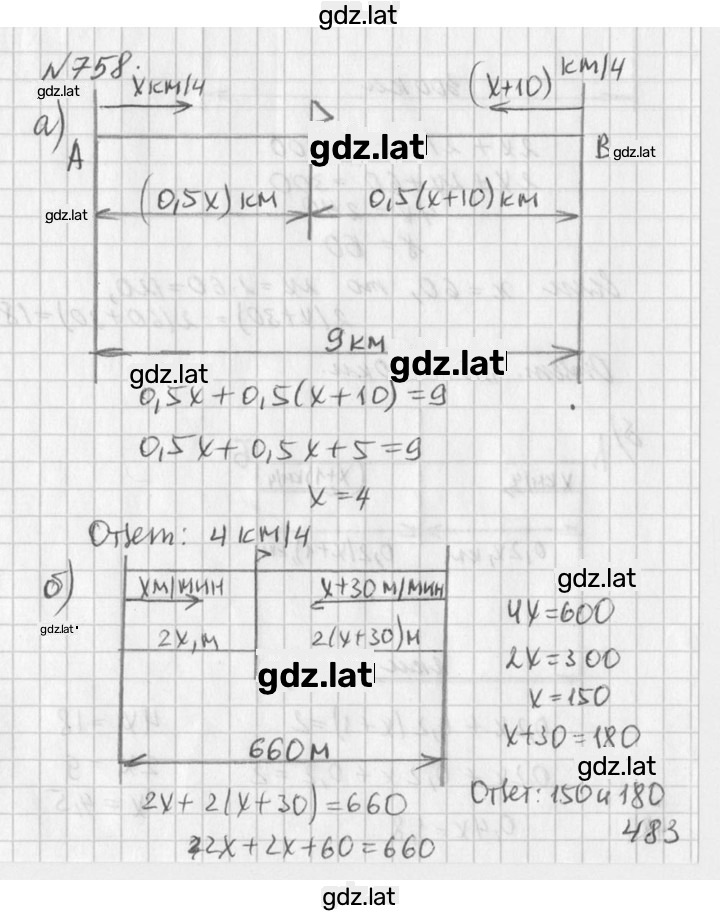 gdz.lat
№758.
gdz.lat
x км/ч
(x+10) км/ч
а)
gdz.lat
A
B gdz.lat
(0,5x) км
0,5(x+10) км
gdz.lat
9 км
gdz.lat
gdz.lat
0,5x+0,5(x+10)=9
0,5x+0,5x+5=9
x=4
Ответ: 4 км/ч
б)
xм/мин
x+30 м/мин
gdz.lat
gdz.lat
2x, м
2(x+30)м
4x=600
gdz.lat
2x=300
x=150
660 м
x+30=180
gdz.lat
2x+2(x+30)=660
Ответ: 150 и 180
22x+2x+60=660
483
gdz.lat